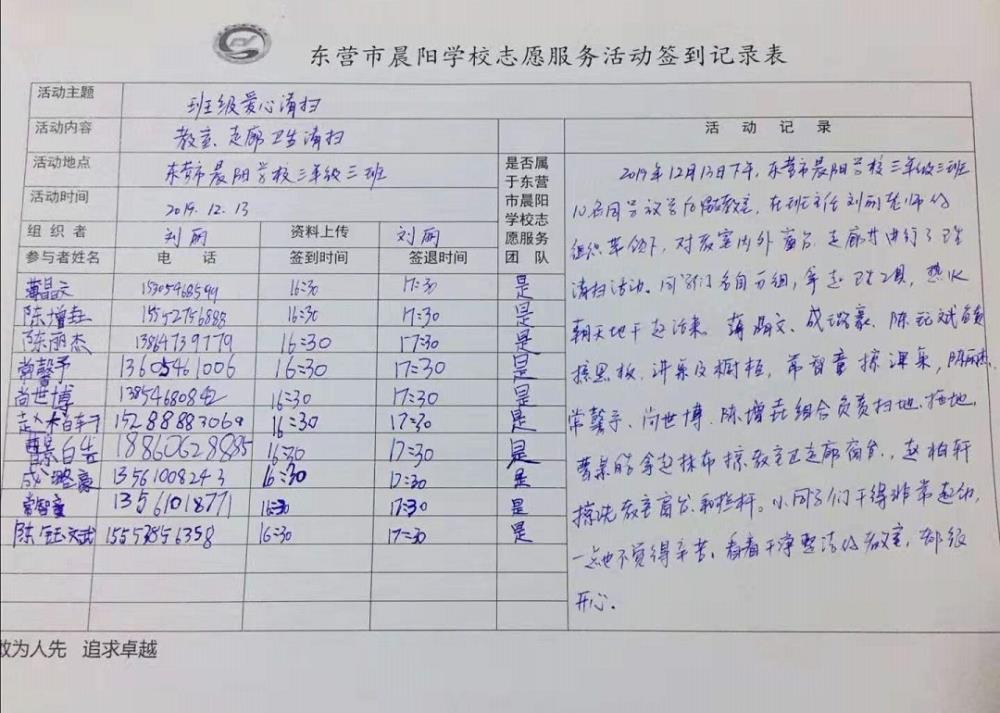 东营市晨阳学校志愿服务活动签到记录表
活动主题 班级爱心清扫
活动内容 教室、走廊卫生清扫
活动地点 东营市晨阳学校三年级三班
活动时间 2019.12.13
组织者 刘丽 资料上传 刘丽
参与者姓名 电话 签到时间 签退时间 是否属于东营市晨阳学校志愿服务团队
16:30 17:30 是
陈增垚 15552756885 16:30 17:30 是
陈丽杰 13864739779 16:30 17:30 是
常馨予 13605461006 16:30 17:30 是
尚世博 13854680842 16:30 17:30 是
赵柏轩 15288883069 16:30 17:30 是
18860628885 16:30 17:30 是
成璐豪 13561008243 16:30 17:30 是
常智童 13561018771 16:30 17:30 是
陈钰斌 16:30 17:30 是
活动记录
2019年12月13日下午,东营市晨阳学校三年级三班
10名同学放学后留教室,在班主任刘丽老师的
组织带领下,对教室内外窗台、走廊进行了卫生
清扫活动。同学们各自分组,拿起卫生工具,热火
朝天地干起活来。成璐豪、陈钰斌负责
擦黑板、讲桌及橱柜,常智童擦课桌,陈丽杰、
常馨予、尚世博、陈增垚组合负责扫地、拖地,
拿起抹布擦教室及走廊窗台,赵柏轩
擦洗教室窗台和栏杆。小同学们干得非常起劲,
一点也不觉得辛苦,看着干净整洁的教室,都很
开心。
敢为人先 追求卓越